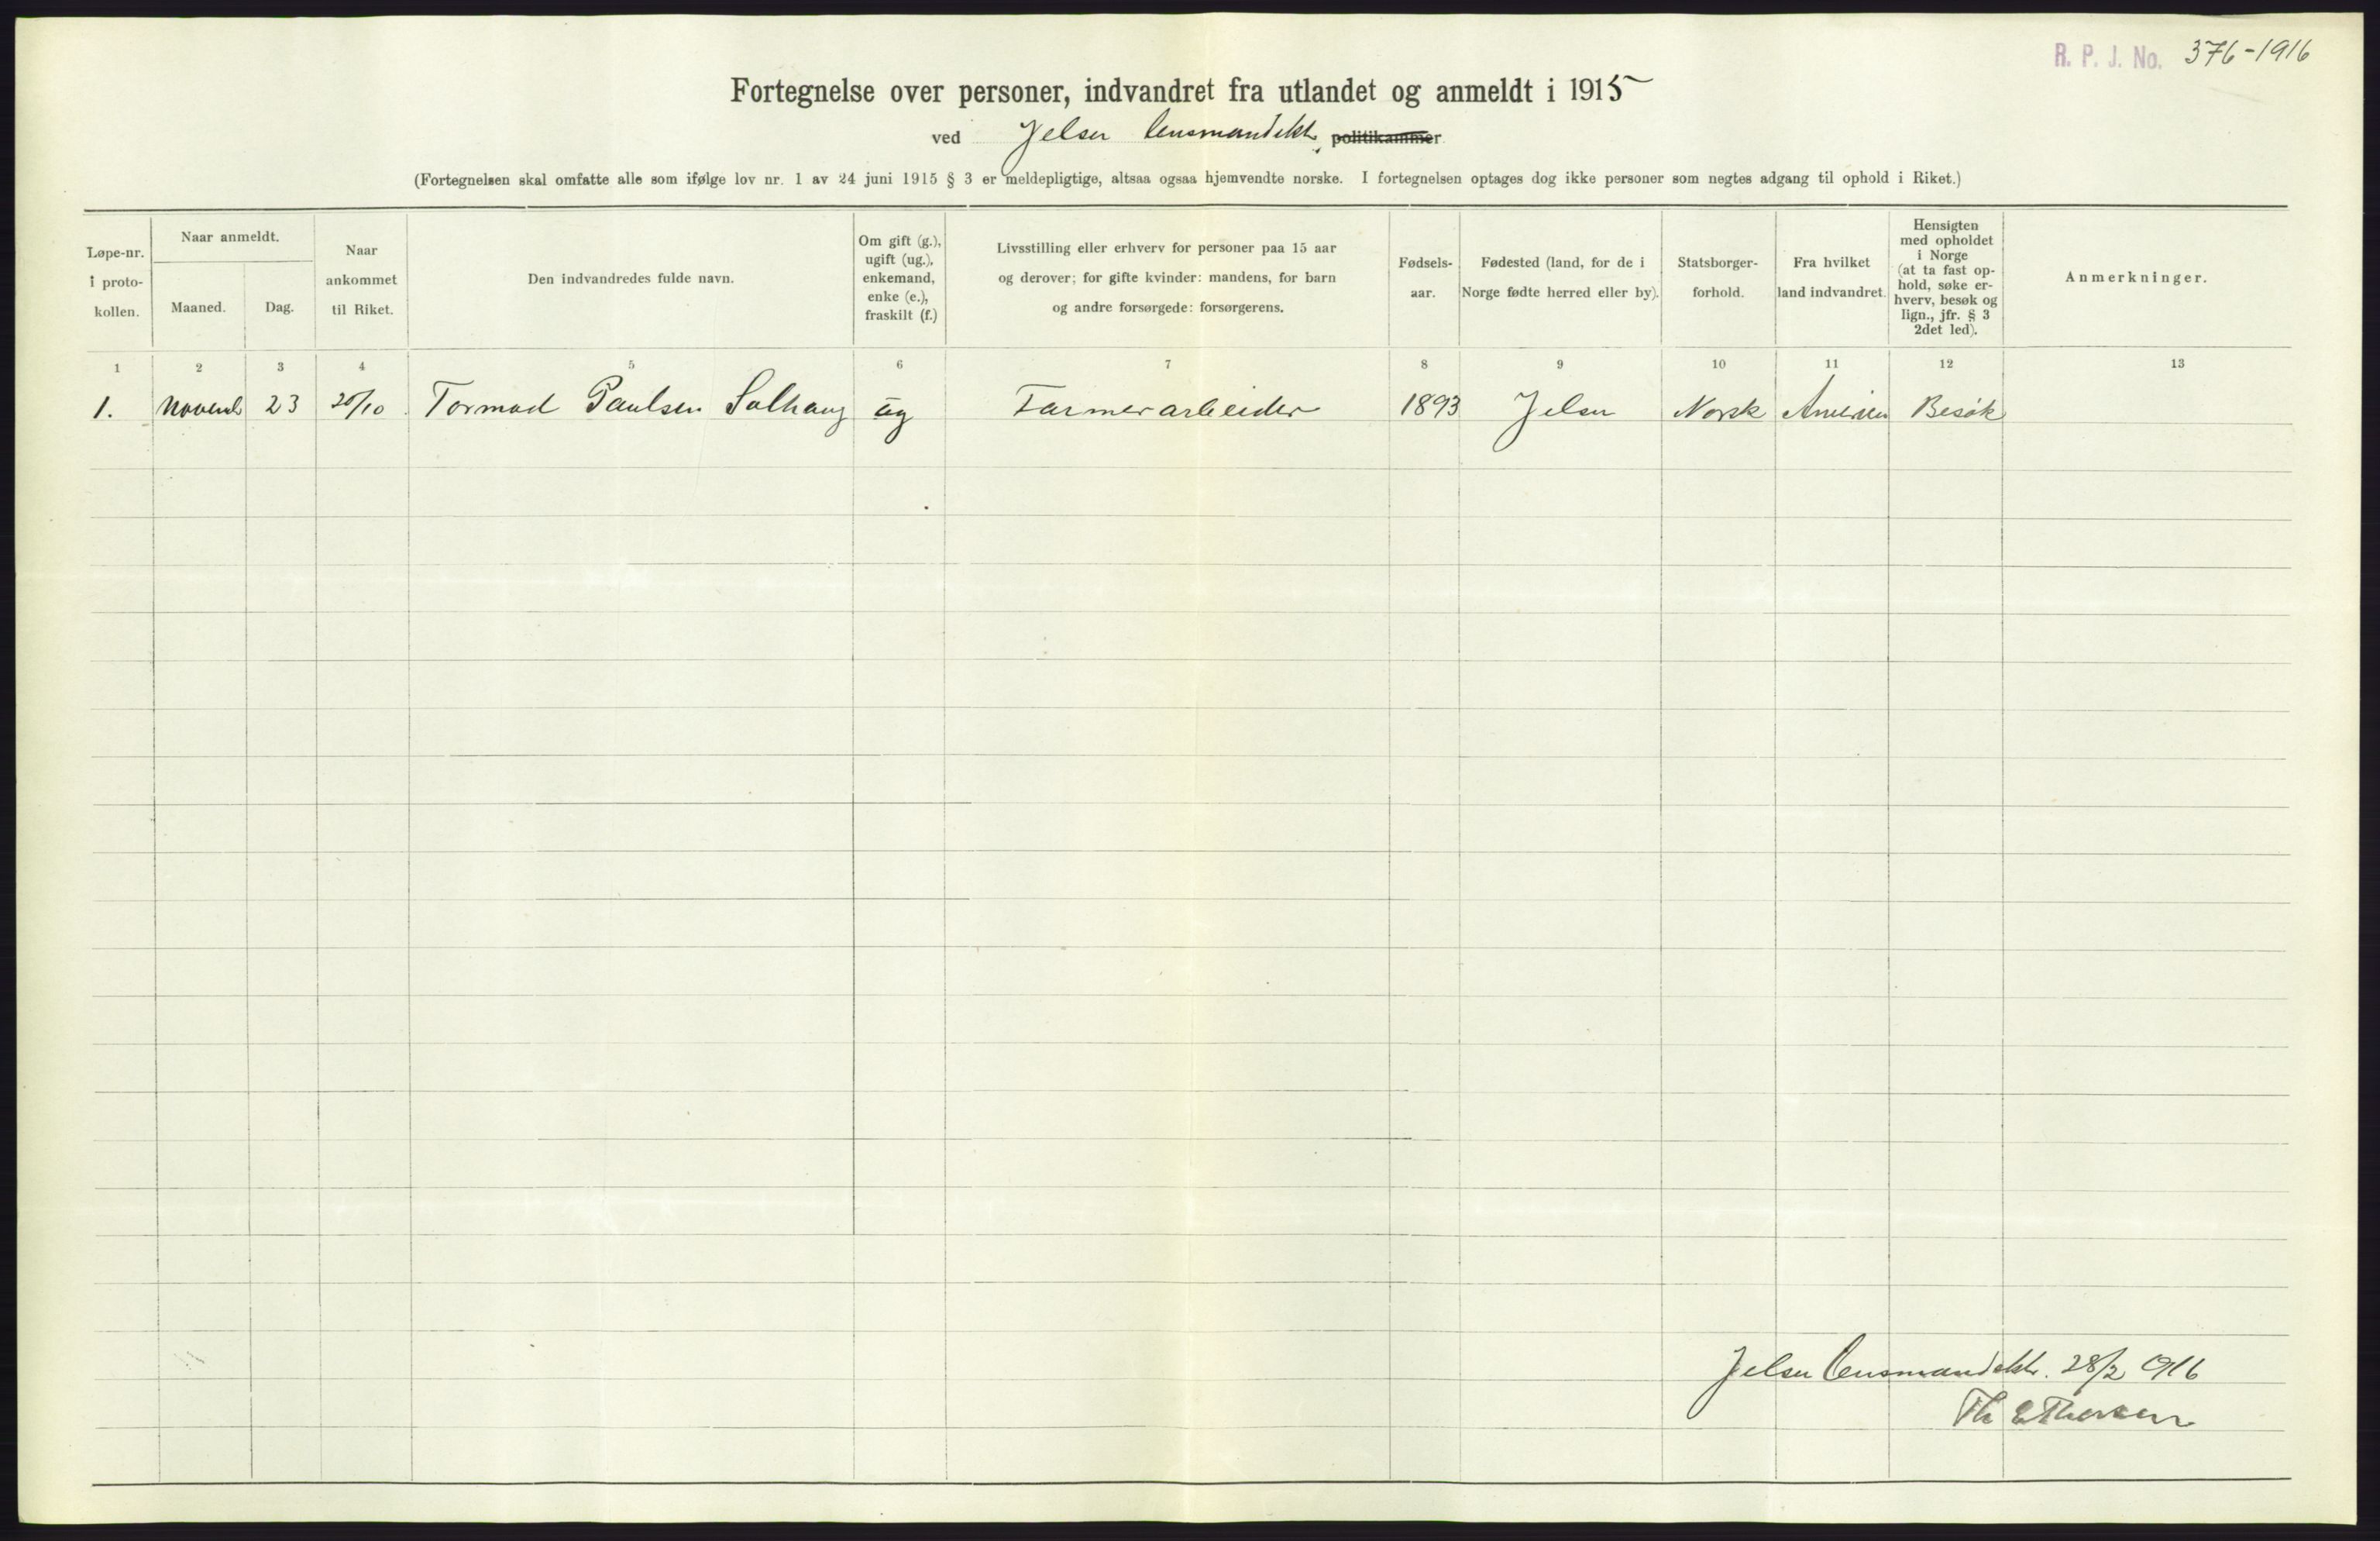 R. P. J. No. 376-1916
Fortegnelse over personer, indvandret fra utlandet og anmeldt i 1915
ved Jelser lensmandsdt. politikammer
(Fortegnelsen skal omfatte alle som ifølge lov nr. 1 av 24 juni 1915 § 3 er meldepligtige, altsaa ogsaa hjemvendte norske. I fortegnelsen optages dog ikke personer som negtes adgang til ophold i Riket.)
Løpe-nr. i proto-kollen.
Naar anmeldt.
Maaned.
Dag.
Naar ankommet til Riket.
Den indvandredes fulde navn.
Om gift (g.), ugift (ug.), enkemand, enke (e.), fraskilt (f.)
Livsstilling eller erhverv for personer paa 15 aar og derover; for gifte kvinder: mandens, for barn og andre forsørgede: forsørgerens.
Fødsels-aar.
Fødested (land, for de i Norge fødte herred eller by).
Statsborger-forhold.
Fra hvilket land indvandret.
Hensigten med opholdet i Norge (at ta fast op-hold, søke er-hverv, besøk og lign., jfr. § 3 2det led).
Anmerkninger.
1 2 3 4 5 6 7 8 9 10 11 12 13
1. Novemb 23 20/10 Tormod Paulsen Solhaug ug Farmerarbeider 1893 Jelser Norsk Amerika Besøk
Jelser lensmandsdt. 28/2 1916
Th E Thorsen